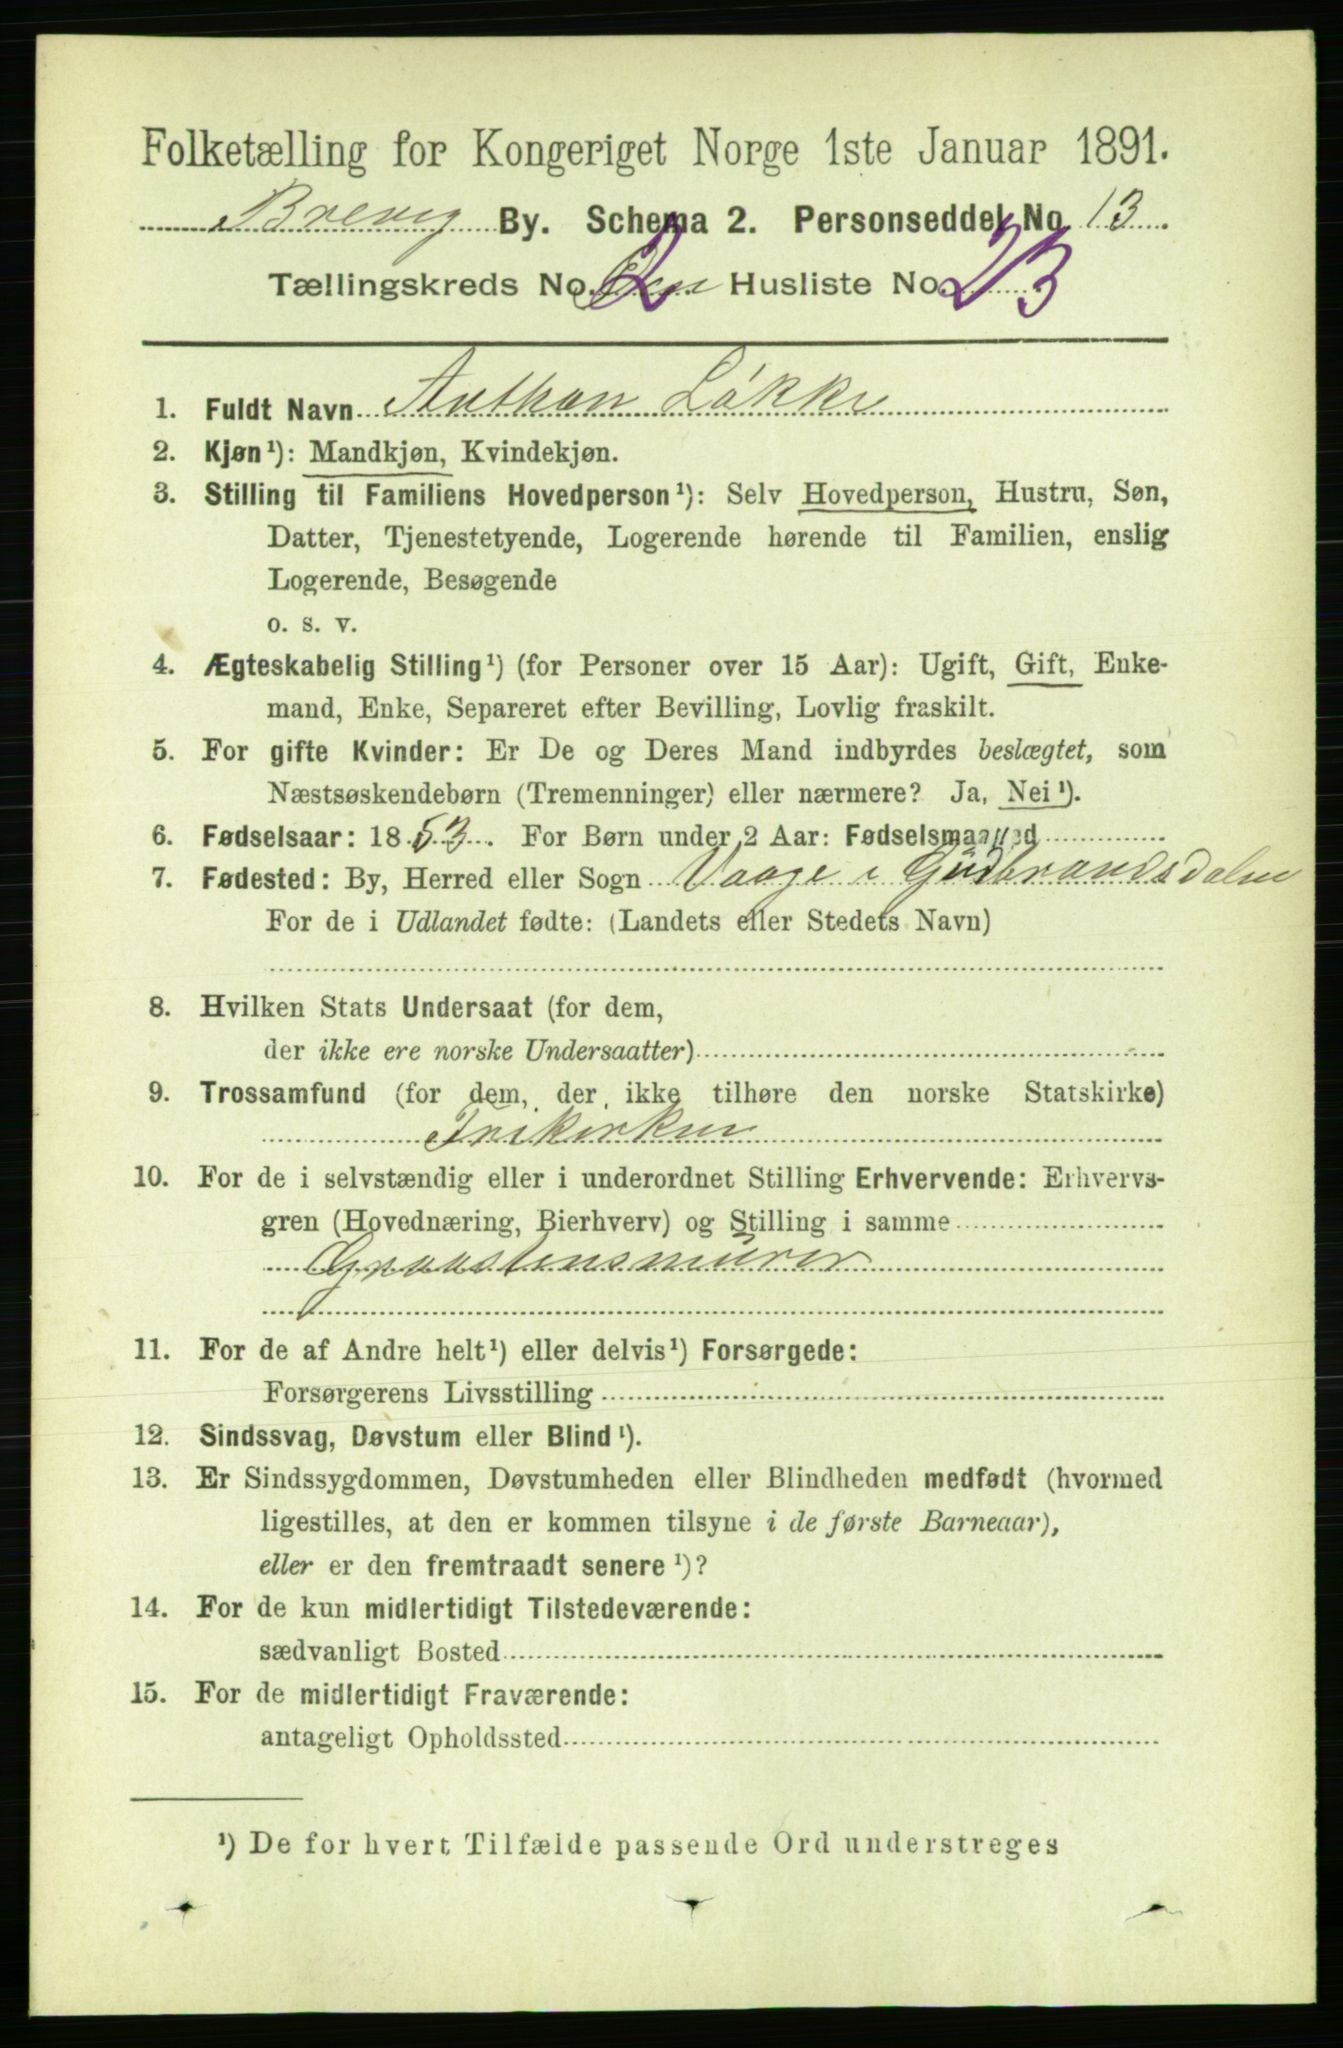 Folketælling for Kongeriget Norge 1ste Januar 1891.
Brevig By. Schema 2. Personseddel No 13.
Tællingskreds No. 2 Husliste No. 23
1. Fuldt Navn Anthon Løkke
2. Kjøn¹): Mandkjøn, Kvindekjøn.
3. Stilling til Familiens Hovedperson¹): Selv Hovedperson, Hustru, Søn,
Datter, Tjenestetyende, Logerende hørende til Familien, enslig
Logerende, Besøgende
o. s. v.
4. Ægteskabelig Stilling¹) (for Personer over 15 Aar): Ugift, Gift, Enke-
mand, Enke, Separeret efter Bevilling, Lovlig fraskilt.
5. For gifte Kvinder: Er De og Deres Mand indbyrdes beslægtet, som
Næstsøskendebørn (Tremenninger) eller nærmere? Ja, Nei¹).
6. Fødselsaar: 1853. For Børn under 2 Aar: Fødselsmaaned
7. Fødested: By, Herred eller Sogn Vaage i Gudbrandsdalen
For de i Udlandet fødte: (Landets eller Stedets Navn)
8. Hvilken Stats Undersaat (for dem,
der ikke ere norske Undersaatter)
9. Trossamfund (for dem, der ikke tilhøre den norske Statskirke)
Frikirken
10. For de i selvstændig eller i underordnet Stilling Erhvervende: Erhvervs-
gren (Hovednæring, Bierhverv) og Stilling i samme
Graastensmurer
11. For de af Andre helt¹) eller delvis¹) Forsørgede:
Forsørgerens Livsstilling
12. Sindssvag, Døvstum eller Blind¹).
13. Er Sindssygdommen, Døvstumheden eller Blindheden medfødt (hvormed
ligestilles, at den er kommen tilsyne i de første Barneaar),
eller er den fremtraadt senere¹)?
14. For de kun midlertidigt Tilstedeværende:
sædvanligt Bosted
15. For de midlertidigt Fraværende:
antageligt Opholdssted
¹) De for hvert Tilfælde passende Ord understreges